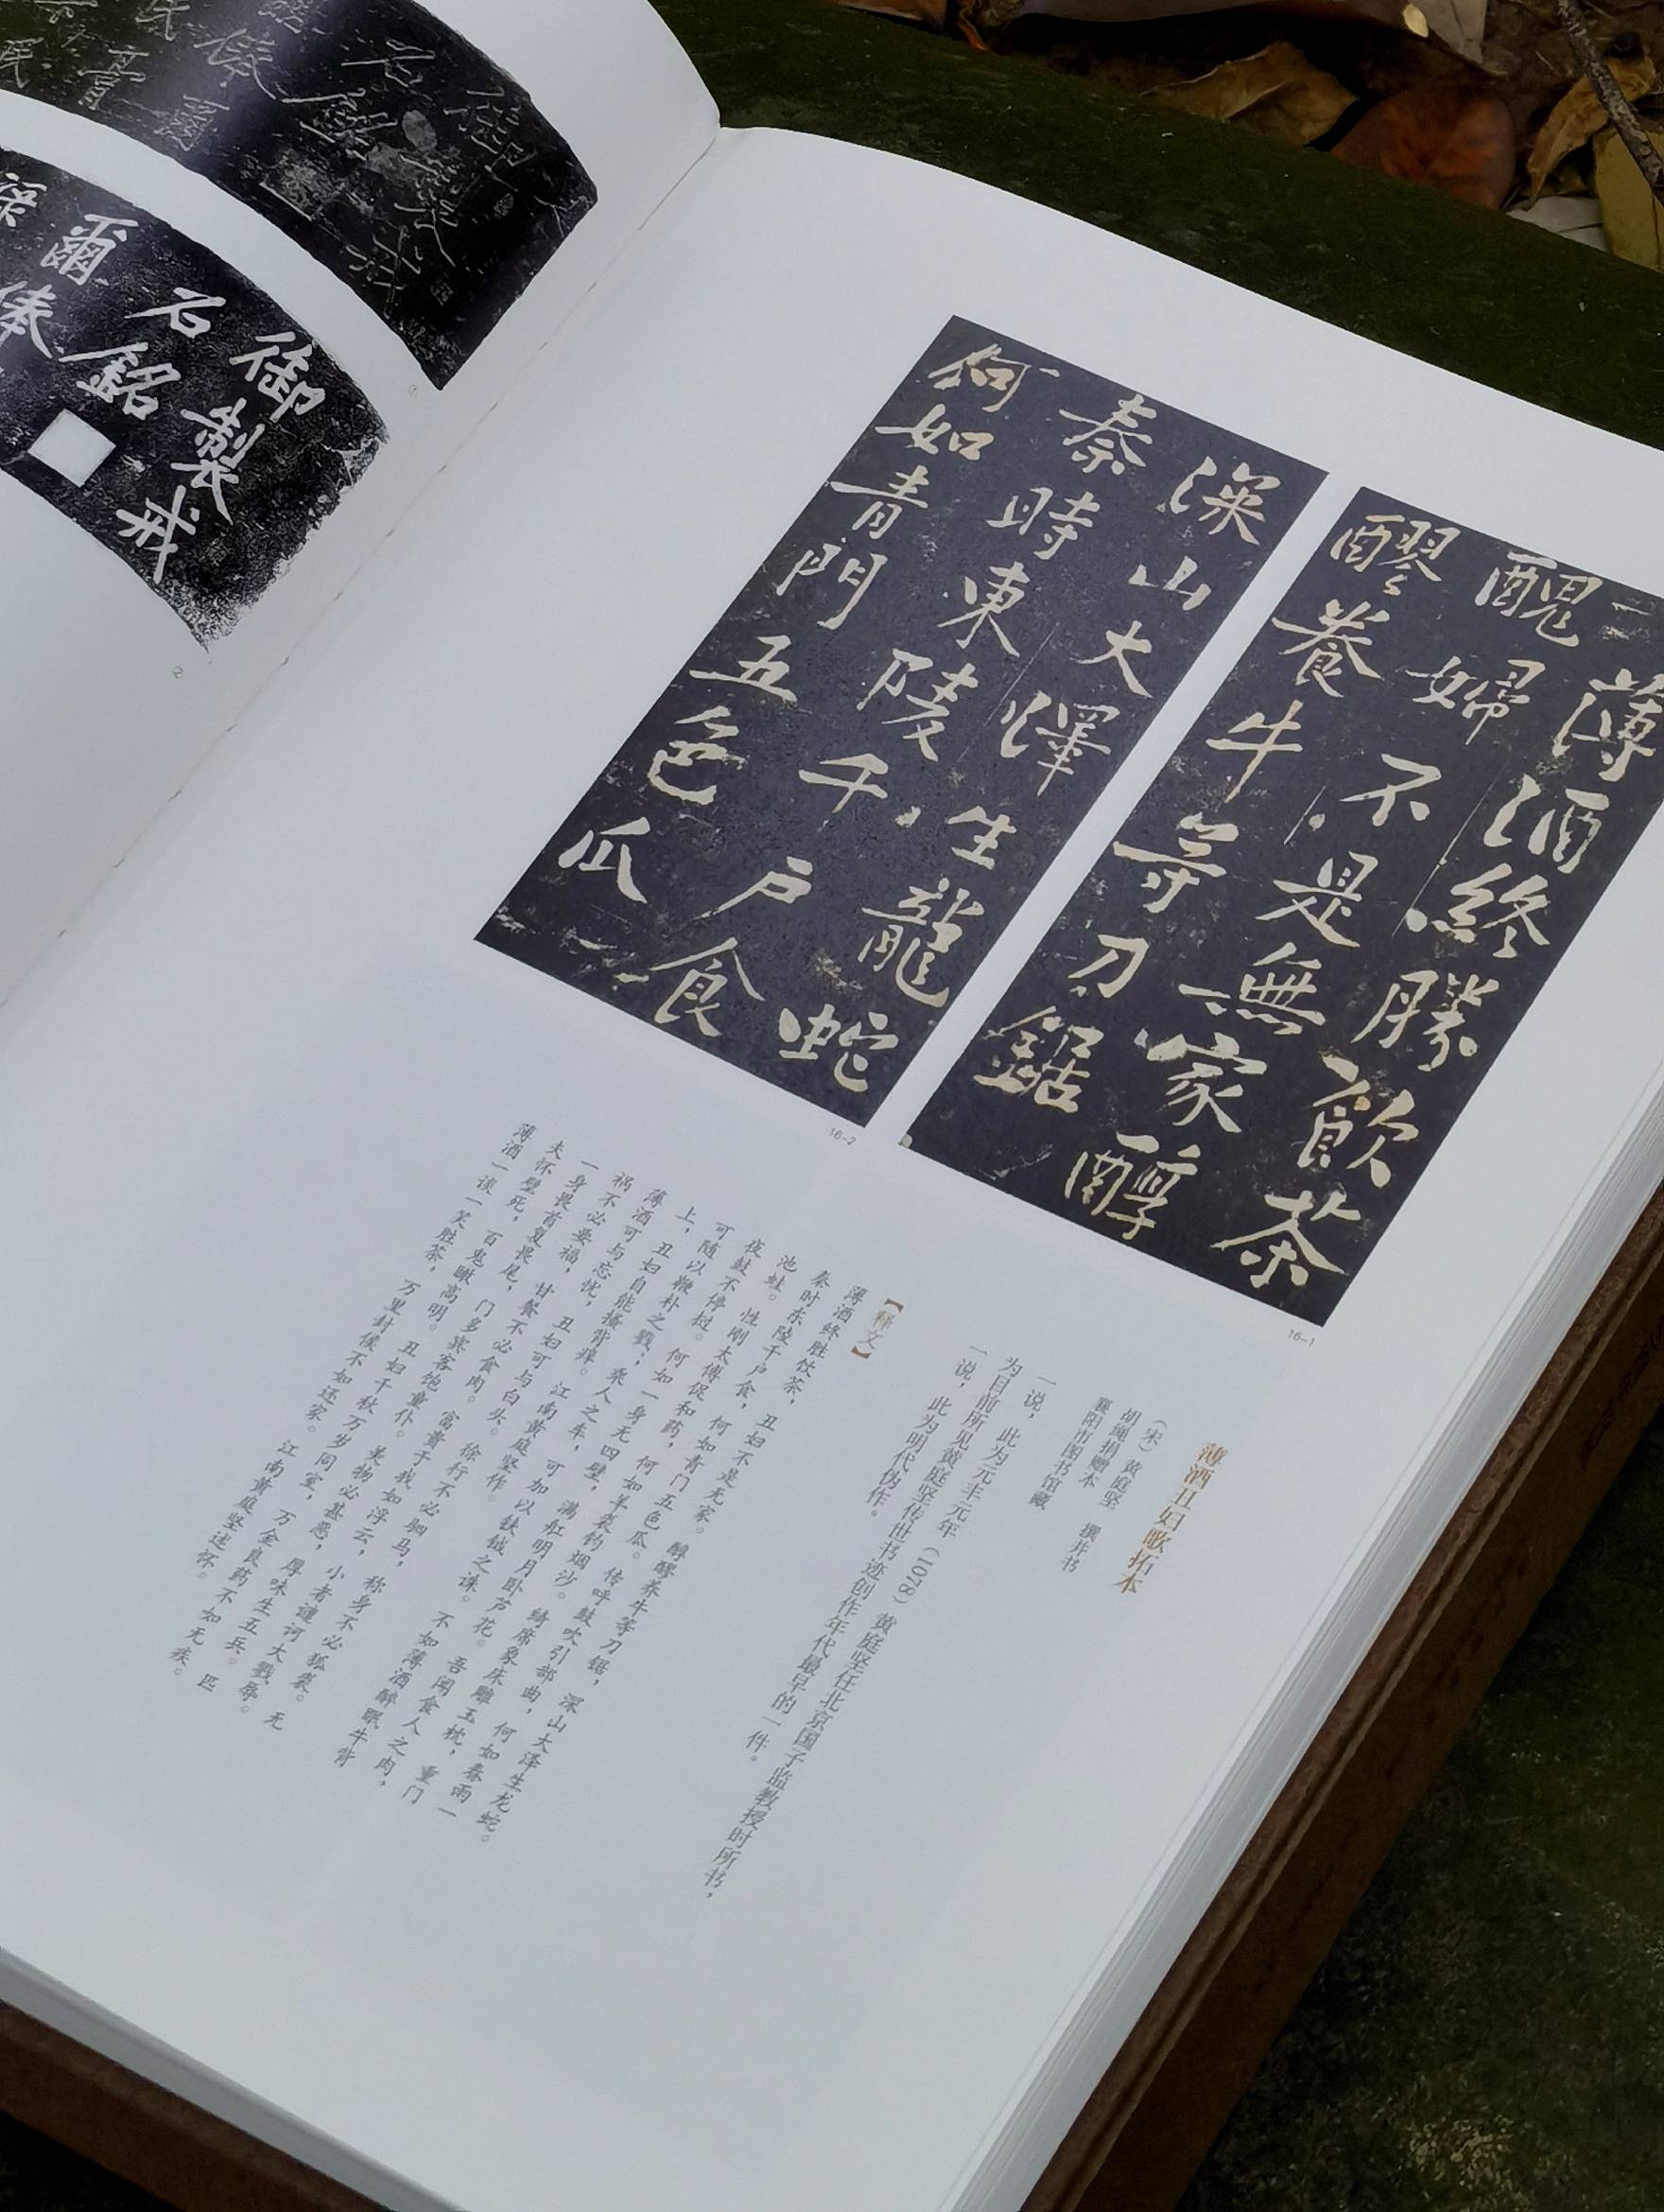 薄酒終勝飲茶
醜婦不是無家醇
醪養牛等刀鋸
16-1
深山大澤生龍蛇
秦時東陵千户食
何如青門五色瓜
16-2
薄酒丑妇歌拓本
（宋）黄庭坚 撰并书
胡绳捐赠本
襄阳市图书馆藏
一说，此为元丰元年（1078）黄庭坚任北京国子监教授时所书，
为目前所见黄庭坚传世书迹创作年代最早的一件。
一说，此为明代伪作。
【释文】
薄酒终胜饮茶，丑妇不是无家。醇醪养牛等刀锯，深山大泽生龙蛇。
秦时东陵千户食，何如青门五色瓜。传呼鼓吹引部曲，何如春雨一
池蛙。性刚太傅促和药，何如羊裘钓烟沙。绮席象床雕玉枕，重门
夜鼓不停挝。何如一身无四壁，满舡明月卧芦花。吾闻食人之肉，
可随以鞭朴之戮；乘人之车，可加以铁钺之诛。不如薄酒醉眠牛背
上，丑妇自能搔背痒。江南黄庭坚作。
薄酒可与忘忧，丑妇可与白头。徐行不必驷马，称身不必狐裘。无
祸不必要福，甘餐不必食肉。富贵于我如浮云，小者谴诃大戮辱。
一身畏首复畏尾，门多宾客饱童仆。美物必甚恶，厚味生五兵。匹
夫怀璧死，百鬼瞰高明。丑妇千秋万岁同室，万金良药不如无疾。
薄酒一谈一笑胜茶，万里封侯不如还家。江南黄庭坚述怀。
御製戒
石銘
①
御製戒
石銘
爾俸
②